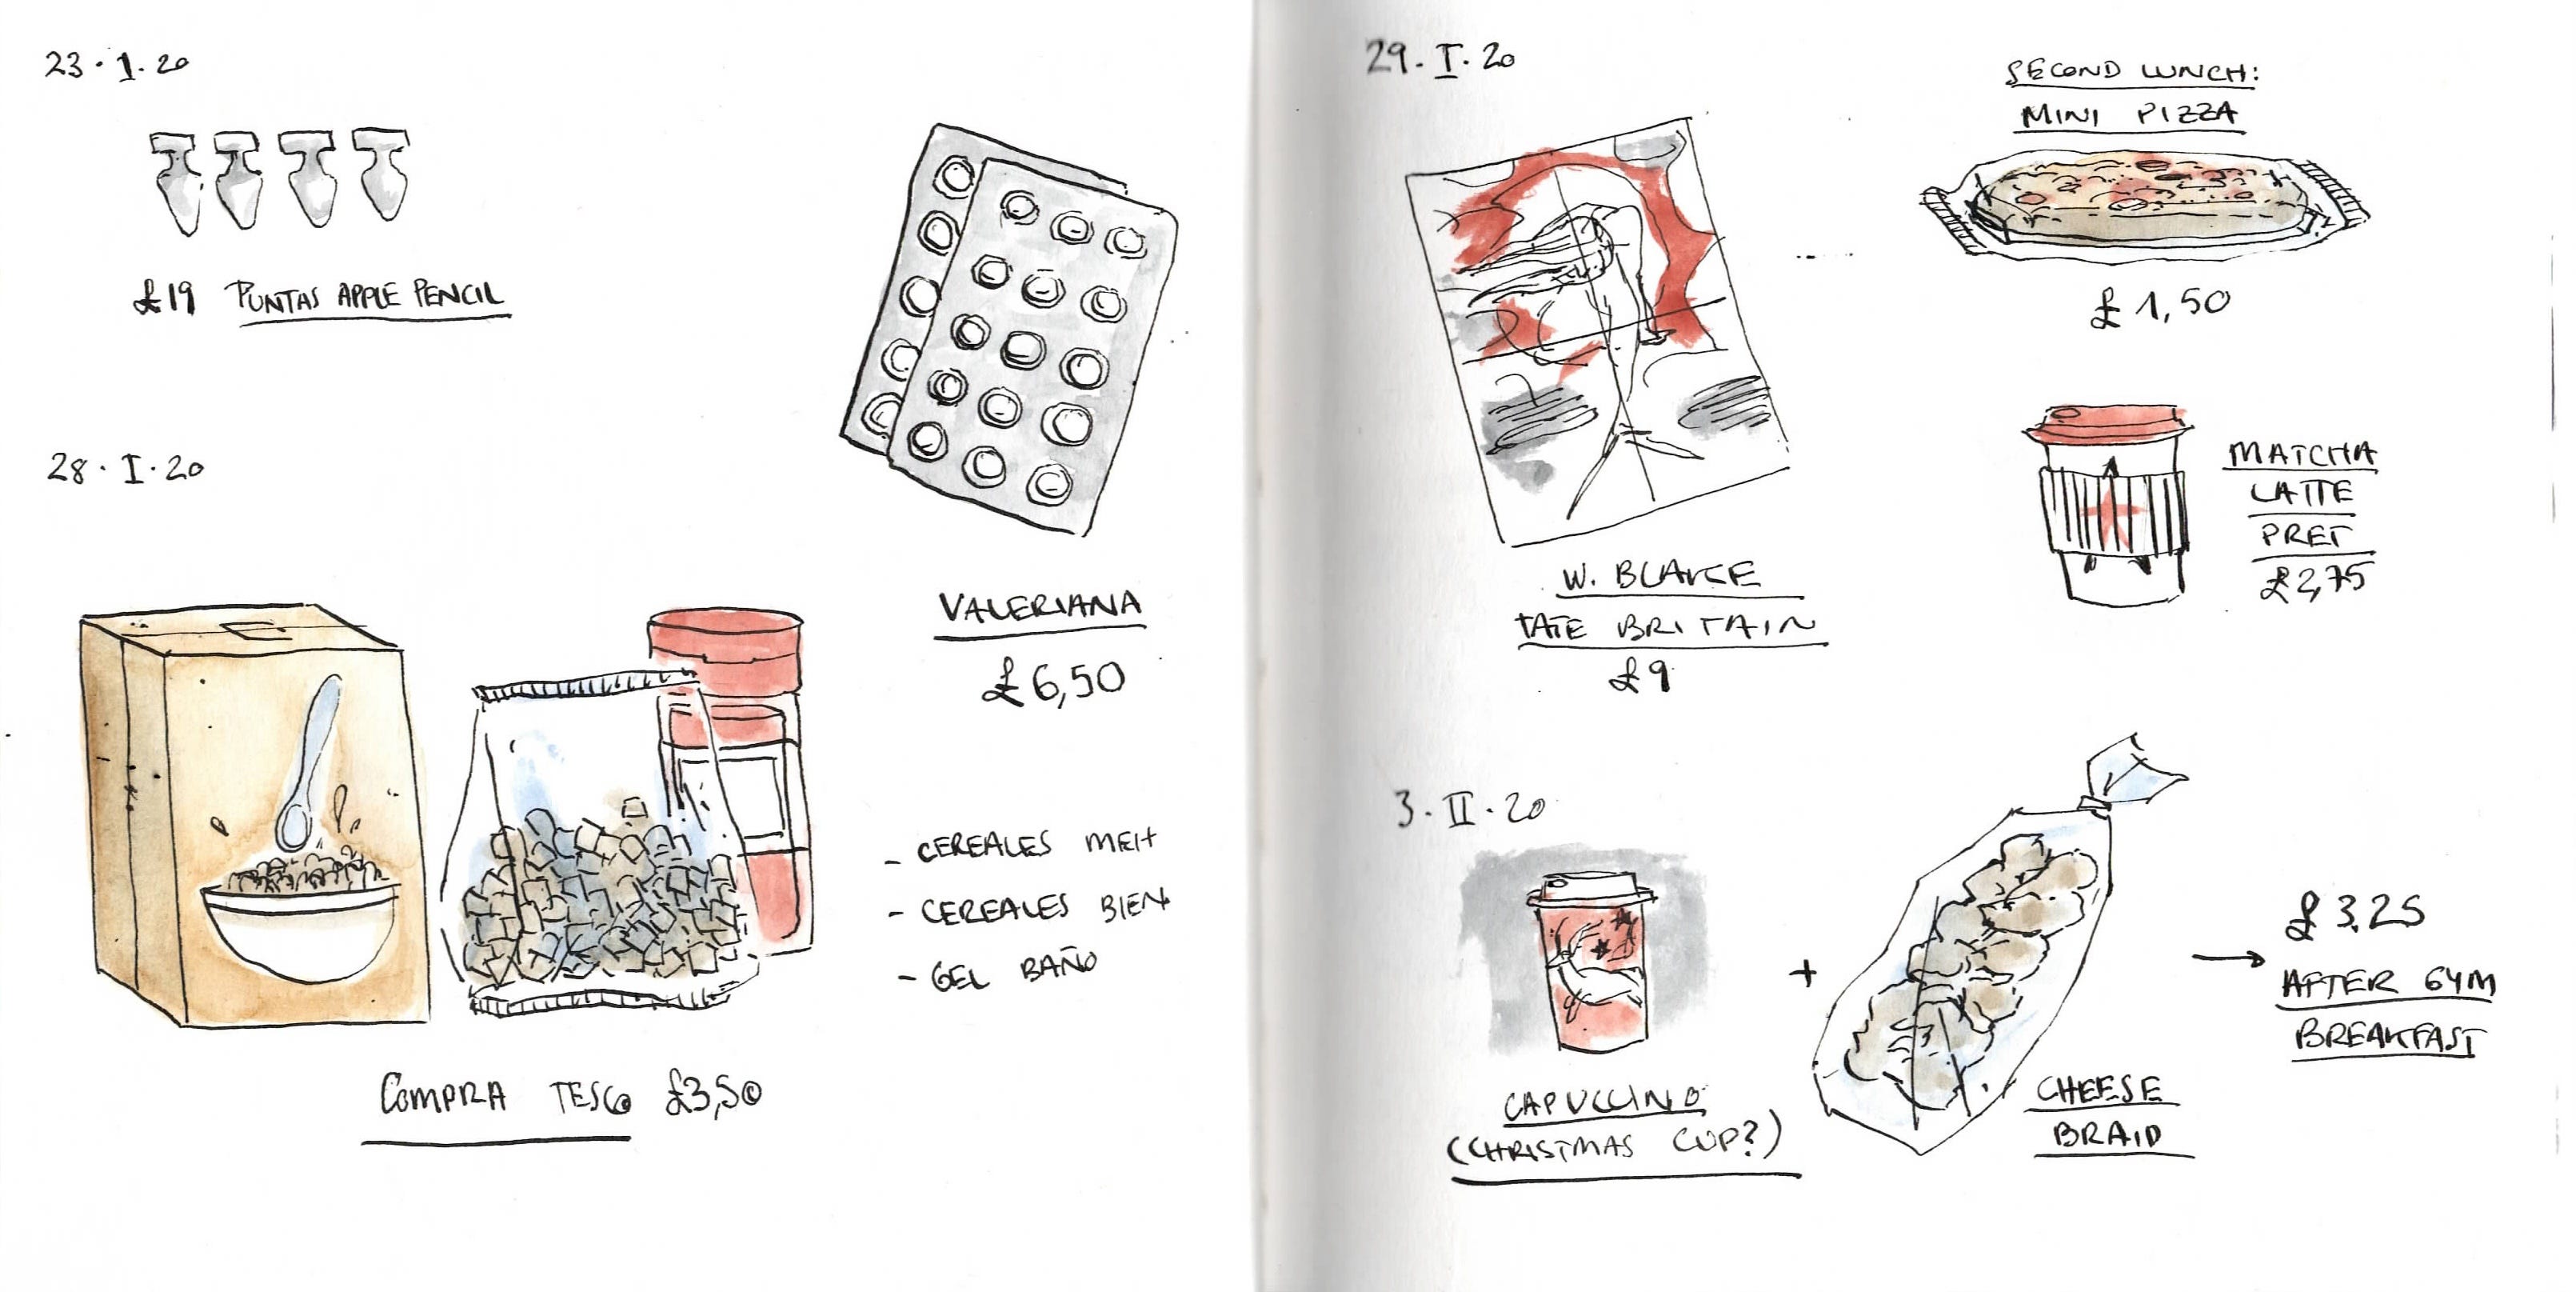 23·I·20
£19 PUNTAS APPLE PENCIL
VALERIANA
£6,50
28·I·20
- CEREALES MEH
- CEREALES BIEN
- GEL BAÑO
COMPRA TESCO £3,50
29·I·20
W. BLAKE
TATE BRITAIN
£9
SECOND LUNCH:
MINI PIZZA
£1,50
MATCHA
LATTE
PRET
£2,75
3·II·20
CAPUCCINO
(CHRISTMAS CUP?)
+
CHEESE
BRAID
→ £3,25
AFTER GYM
BREAKFAST